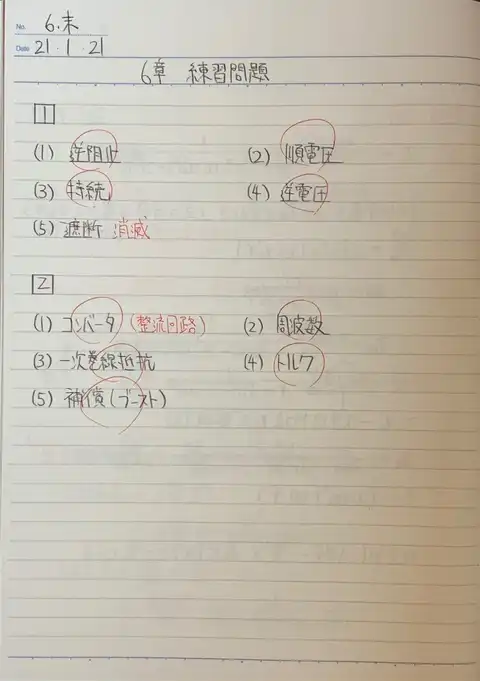 No. 6.末
Date 21・1・21
6章 練習問題
1
(1) 逆阻止 (2) 順電圧
(3) 持続 (4) 逆電圧
(5) 遮断 消滅
2
(1) コンバータ (整流回路) (2) 周波数
(3) 一次巻線抵抗 (4) トルク
(5) 補償(ブースト)